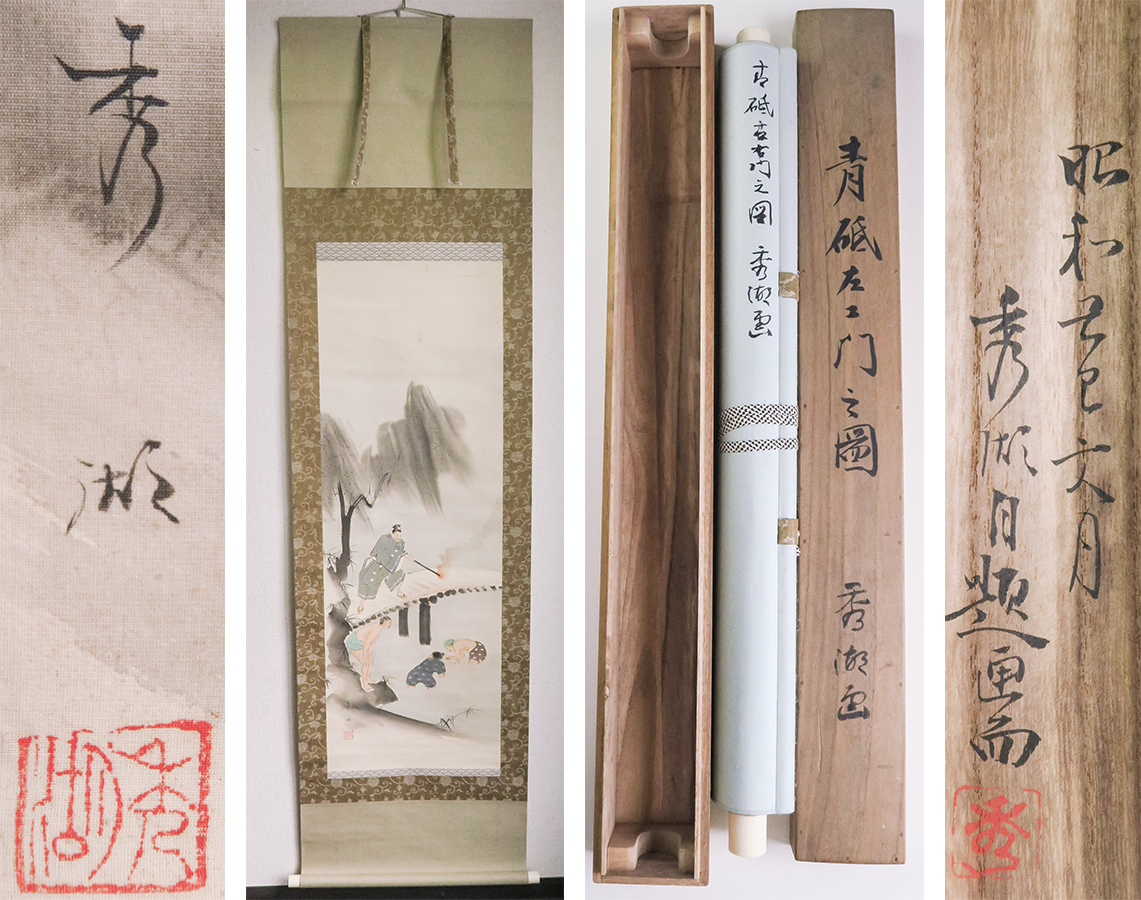 秀湖
秀湖
青砥左門之図 秀湖画
青砥左エ門之圖 秀湖画
昭和己巳文月
秀湖自題画而
秀